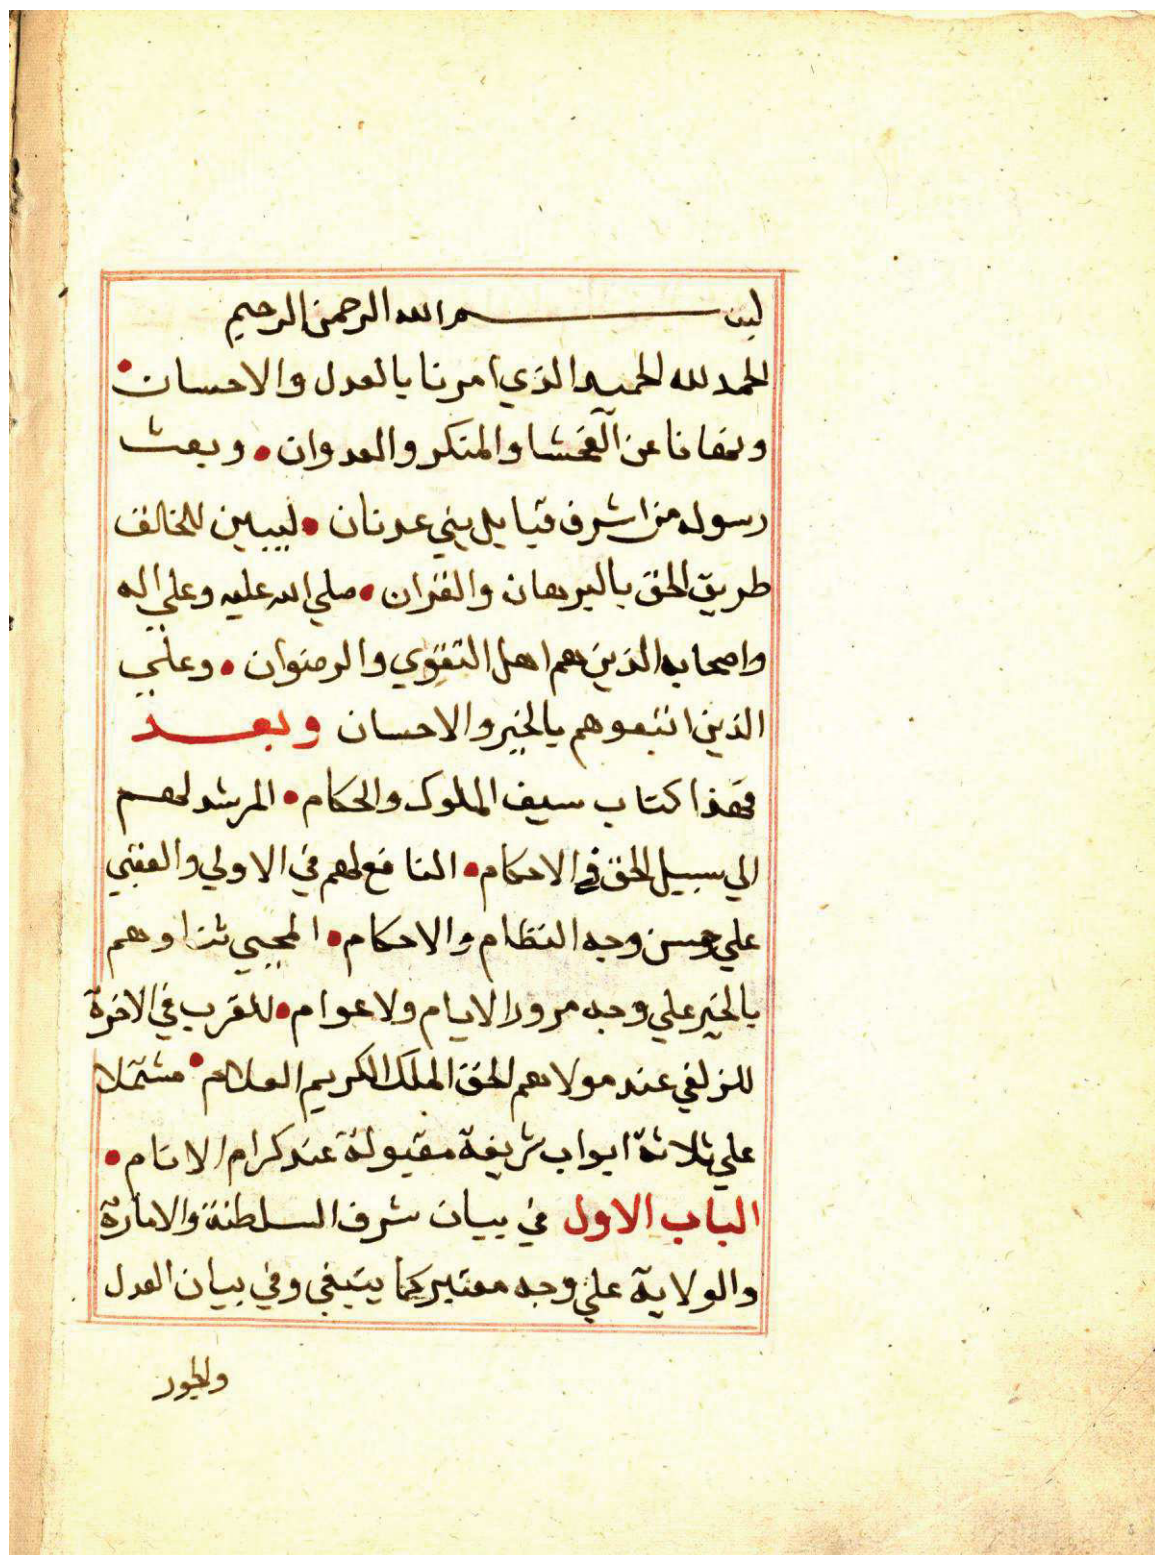 بسم الله الرحمن الرحيم
الحمد لله الحميد الذي امرنا بالعدل والاحسان
ونهانا عن الفحشا والمنكر والعدوان • وبعث
رسوله من اشرف قبايل بني عدنان • ليبين للمخالف
طريق الحق بالبرهان والقران • صلي الله عليه وعلي اله
واصحابه الذين هم اهل التقوي والرضوان • وعلي
الذين اتبعوهم بالخير والاحسان وبعد
فهذا كتاب سيف الملوك والحكام • المرشد لهم
الي سبيل الحق في الاحكام • النافع لهم في الاولي والعقبي
علي حسن وجه النظام والاحكام • المحيي ثناوهم
بالخير علي وجه مرور الايام ولاعوام • للقرب في الاخرة
للزلفي عند مولاهم الحق الملك الكريم العلام • مشتملا
علي ثلاثة ابواب شريفة مقبولة عند كرام الانام •
الباب الاول في بيان شرف السلطنة والامارة
والولاية علي وجه معتبر كما ينبغي وفي بيان العدل
والجور